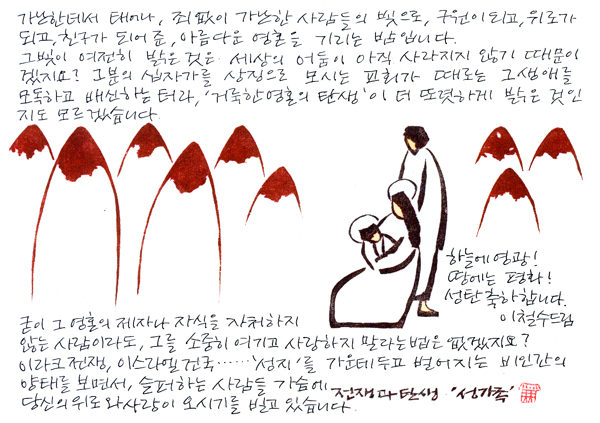 가난한데서 태어나, 죄없이 가난한 사람들의 빛으로, 구원이 되고, 위로가
되고, 친구가 되어 준, 아름다운 영혼을 기리는 밤입니다.
그 빛이 여전히 밝은 것은 세상의 어둠이 아직 사라지지 않기 때문이
겠지요? 그분의 십자가를 상징으로 모시는 교회가 때로는 그 생애를
모독하고 배신하는 터라, '거룩한 영혼의 탄생'이 더 또렷하게 밝은 것인
지도 모르겠습니다.
하늘에 영광!
땅에는 평화!
성탄 축하합니다.
이철수드림
굳이 그 영혼의 제자나 자식을 자처하지
않는 사람이라도, 그를 소중히 여기고 사랑하지 말라는 법은 없겠지요?
이라크전쟁, 이스라엘건국…… '성지'를 가운데두고 벌어지는 비인간의
양태를 보면서, 슬퍼하는 사람들 가슴에
당신의 위로와 사랑이 오시기를 빌고 있습니다.
전쟁과 탄생. '성가족'